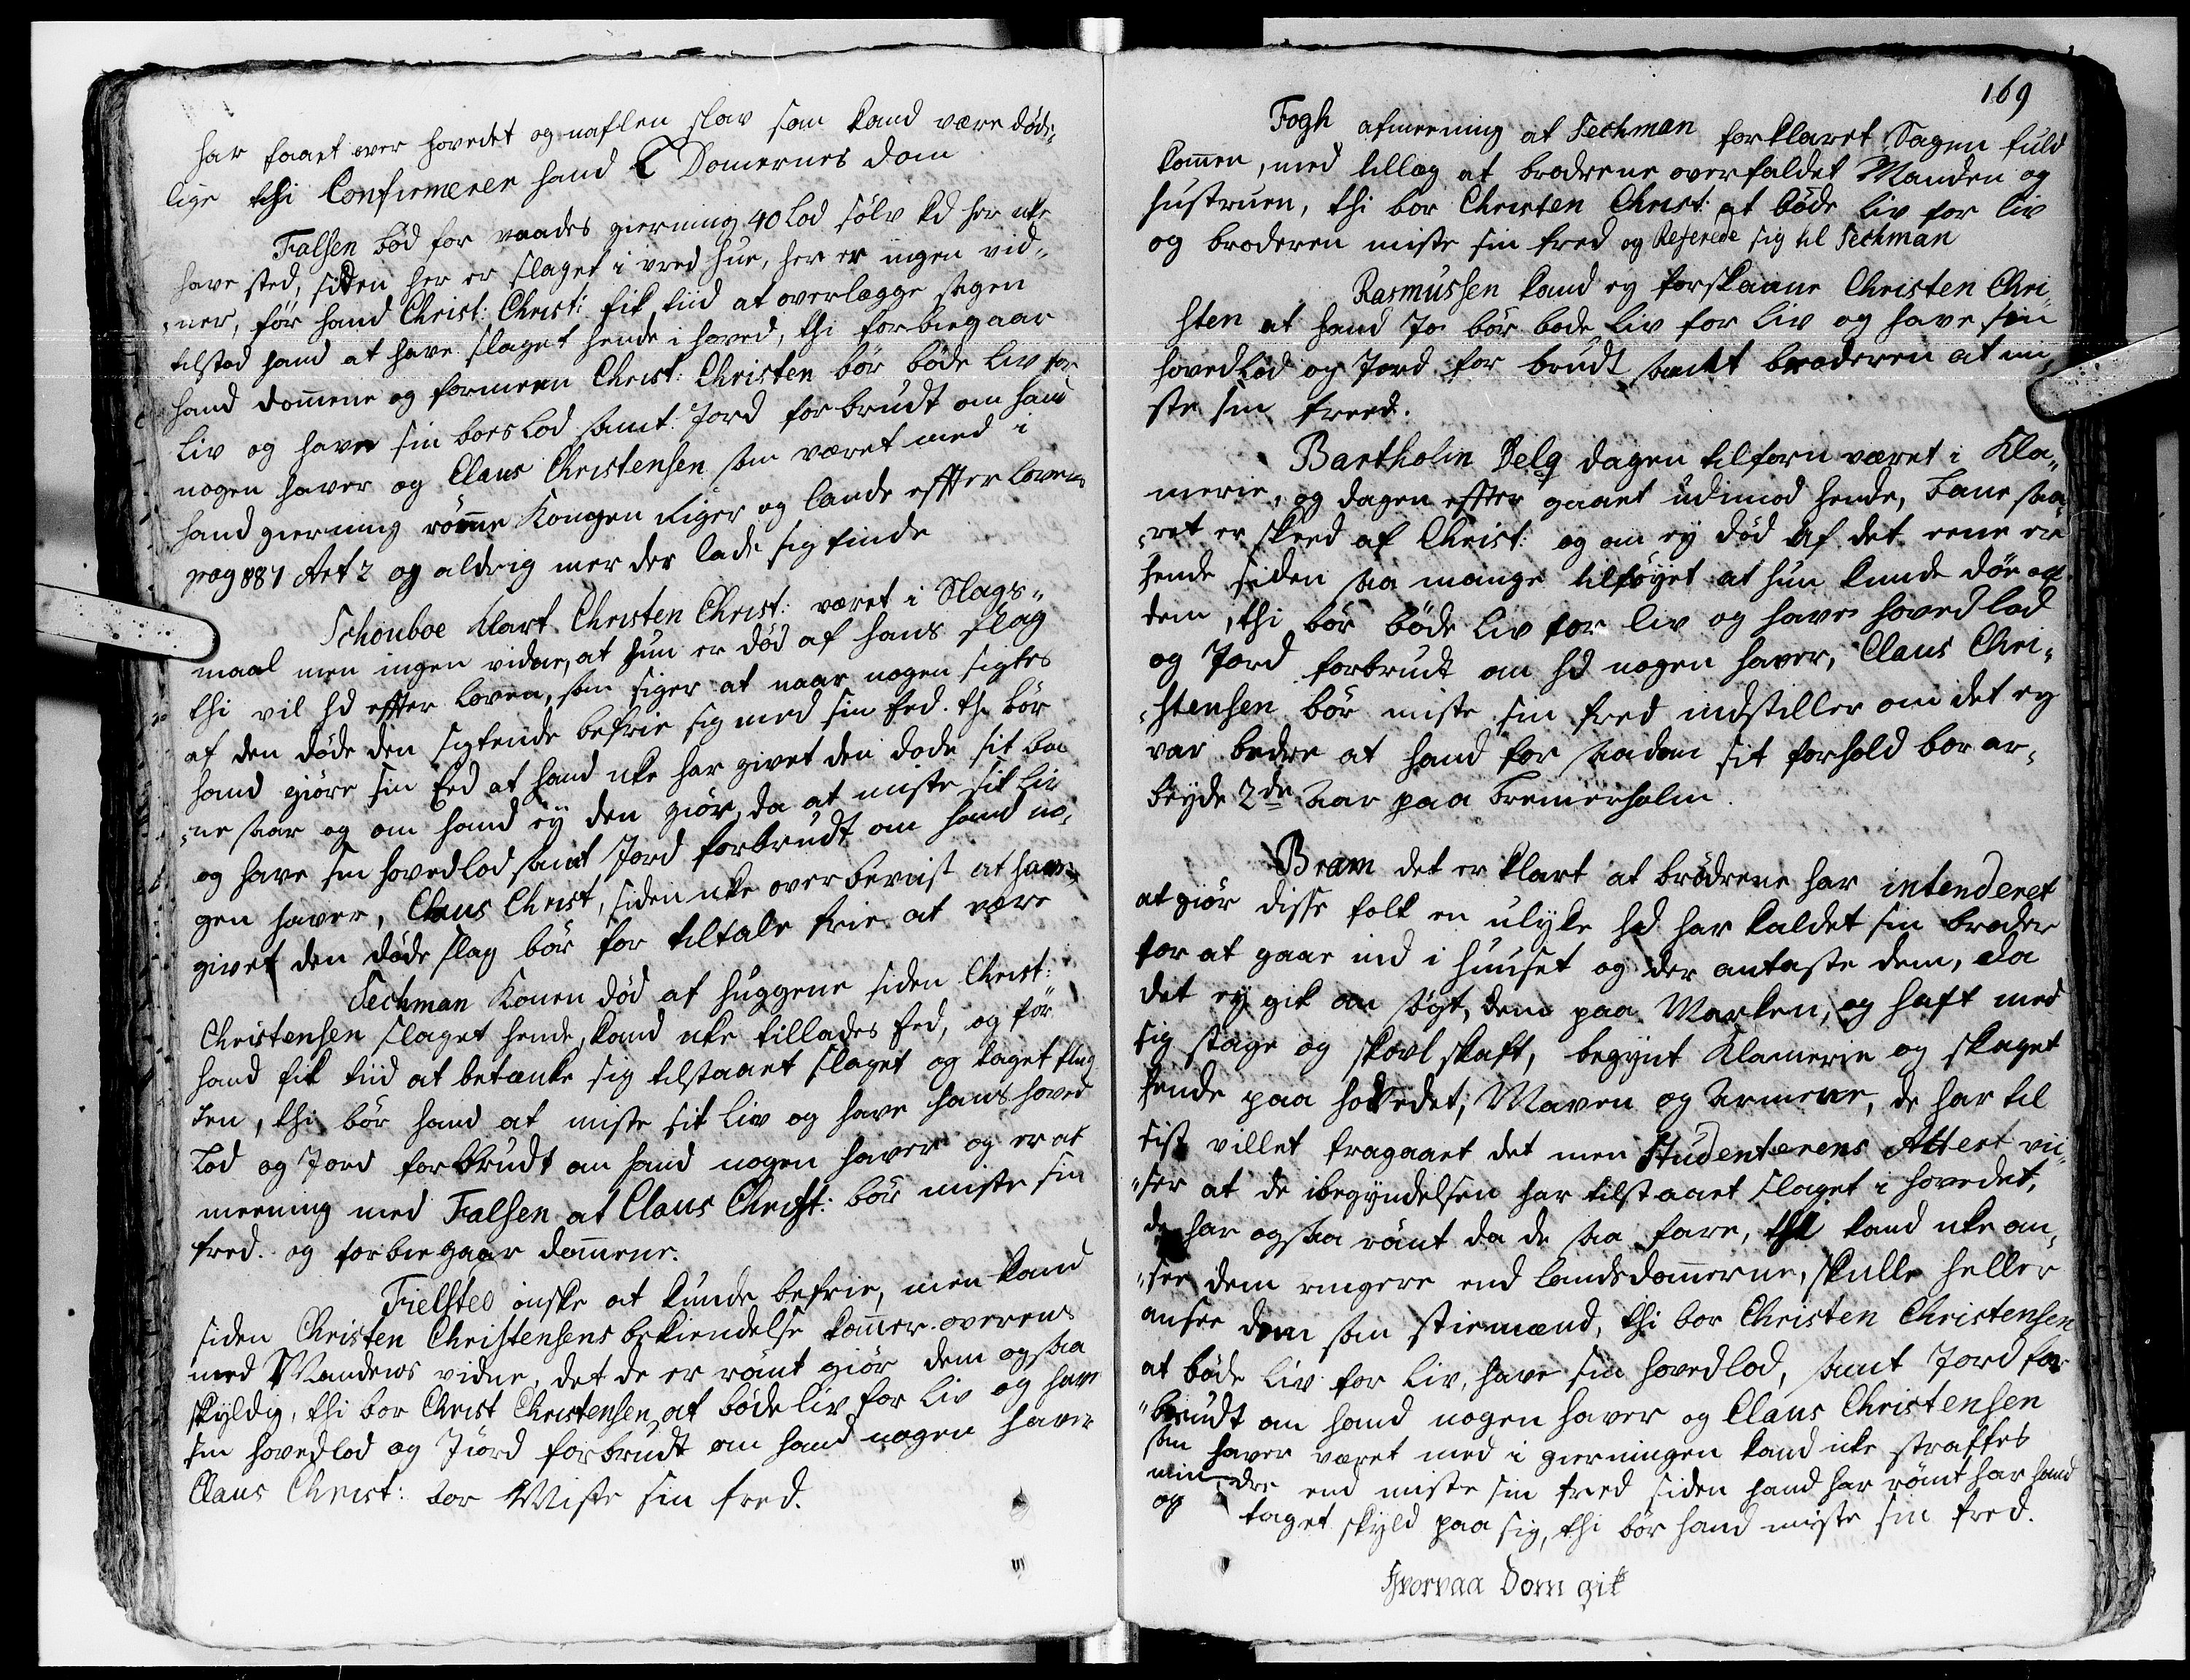 har faaet over hovedet og naflen slav som kand være döde¬
lige thi Confirmerer hand L Domernes dom
Falsen böd for vaades gierning 40 Lod sölv kd her icke
have sted, siden her er slaget i vred hue, her er ingen vid¬
ner, för hand Christ: Christ: fik tiid at overlægge sagen
tilstod hand at have slaget hende i hoved, thi forbiegaar
hand domene og formeen Christ: Christen bör böde Liv for
Liv og have sin boeslod samt Jord forbrudt om hand
nogen haver og Claus Christensen som været med i
hand gierning römme Kongen Riger og lande effter loven
pag 881 Art 2 og aldrig mer der lade sig finde
Schouboe klart Christen Christ: været i Slags¬
maal men ingen vidner, at hun er död af hans slag
thi vil hd effter loven, som siger at naar nogen sigtes
af den döde den sigtende befrie sig med sin Eed. thi bör
hand giöre sin Eed at hand icke har givet den döde sit ba¬
ne saar og om hand ey den giör, da at miste sit Liv
og have sin hovedlod samt Jord forbrudt om hand no¬
gen haver, Claus Christ, siden icke overbeviist at have
givet den döde slag bör for tiltale frie at være
Techman Konen död af huggene siden Christ:
Christensen slaget hende, kand icke tillades Eed, og för
hand fik tiid at betænke sig tilstaaet slaget og taget flug
ten, thi bör hand at miste sit liv og have hans hoved
Lod og Jord forbrudt om hand nogen haver og er af
meening med Falsen at Claus Christ: bör miste sin
fred. og forbiegaar domene.
Fielsted önske at kunde befrie, men kand
siden Christen Christensens bekiendelse kommer overens
med Mandens vidne, det de er römt giör dem ogsaa
skyldig, thi bör Christ Christensen at böde liv for liv og have
sin hovedlod og Jiord forbrudt om hand nogen haver
Claus Christ: bör Miste sin fred.
169
Fogh afmeening at Techman forklaret Sagen fuld
kommen, med tillæg at brödrene overfaldet Manden og
hustruen, thi bör Christen Christ: at böde liv for liv
og broderen miste sin fred og Refererede sig til Techman
Rasmussen kand ey forskaane Christen Chri¬
sten at hand jo bör böde Liv for Liv og have sin
hovedlod og Jord for brudt samt broderen at mi¬
ste sin freed.
Bartholin Delq dagen tilforn været i Kla¬
merie, og dagen effter gaaet udimod hende, bane saa¬
ret er skeed af Christ: og om ey död af det eene er
hende siden saa mange tilföyet at hun kunde döe af
dem, thi bör böde Liv for liv og have hovedlod
og Jord forbrudt om hd nogen haver, Claus Chri¬
stensen bör miste sin fred indstiller om det ey
var bedre at hand for saadan sit forhold bör ar¬
beyde 2de Aar paa Bremerholm.
Bram det er klart at brödrene har intenderet
at giör disse folk en ulyke hd har kaldet sin broder
for at gaae ind i huuset og der antaste dem, da
det ey gik an sögt, dem paa Marken, og haft med
sig stage og skovl skaft, begynt Klamerie og slaget
hende paa hovedet, Maven og Armene, de har til
sist villet fragaaet det men Studenterens Attest vii¬
ser at de i begyndelsen har tilstaaet slaget i hovedet,
de har ogsaa römt da de saa fare, thi kand icke an¬
see dem ringere end landsdomerne, skulle heller
ansee dem som stiemænd, thi bör Christen Christensen
at böde liv for Liv, have sin hovedlod, samt Jord for
brudt om hand nogen haver og Claus Christensen
som haver været med i gierningen kand icke straffes
mindre end miste sin fred siden hand har römt har hand
og taget skyld paa sig, thi bör hand miste sin fred.
Hvorpaa Dom gik